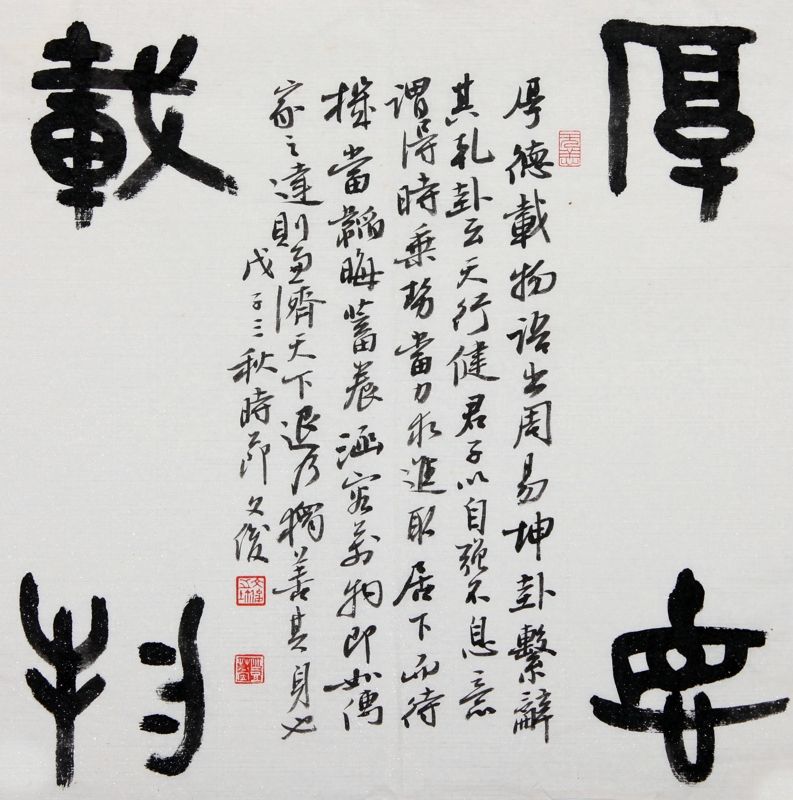 厚悳
載物
厚德載物語出周易坤卦繫辭
其乾卦云天行健君子以自强不息意
謂得時乗勢當力求進取居下而待
機當韜晦蓄養涵容萬物即如儒
家之達則兼濟天下退乃獨善其身也
戊子三秋時節文俊